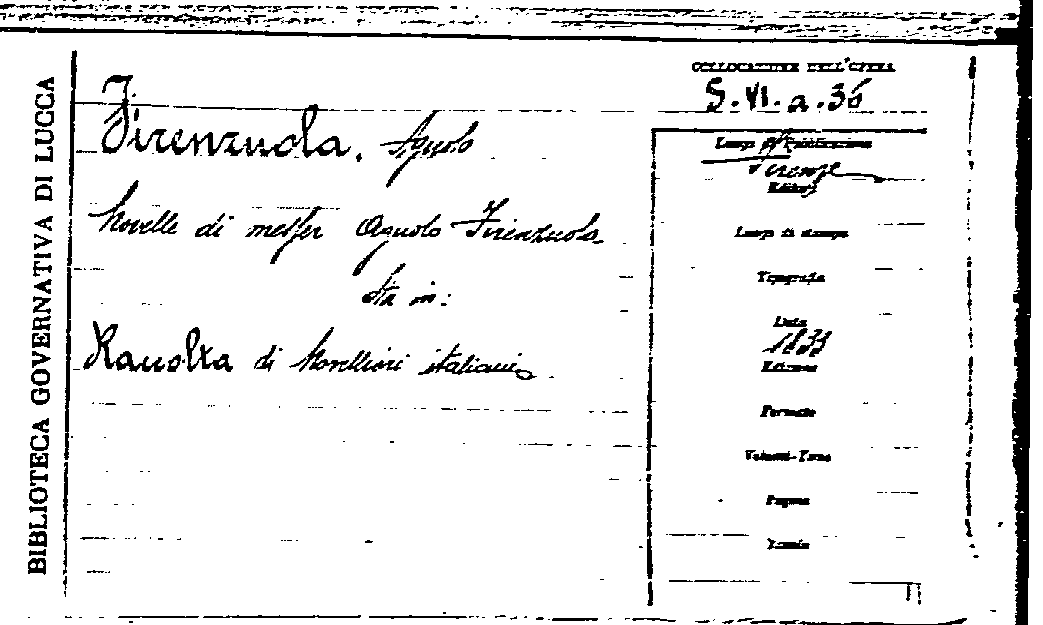 BIBLIOTECA GOVERNATIVA DI LUCCA
COLLOCAZIONE DELL'OPERA
S.VI.a.36
Firenzuola, Agnolo
Novelle di messer Agnolo Firenzuola
Sta in:
Raccolta di Novellieri italiani
Luogo di Pubblicazione
Firenze
Editore
Luogo di stampa
Tipografia
Data
1833
Edizione
Formato
Volumi-Tomo
Pagine